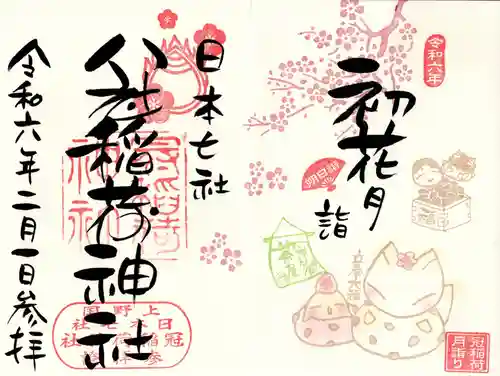 初花月
詣
令和六年
朔日詣
立春大福
福
冠稲荷
月詣り
日本七社
冠稲荷神社
令和六年二月一日参拝
上野国
日本七社
冠稲荷神社